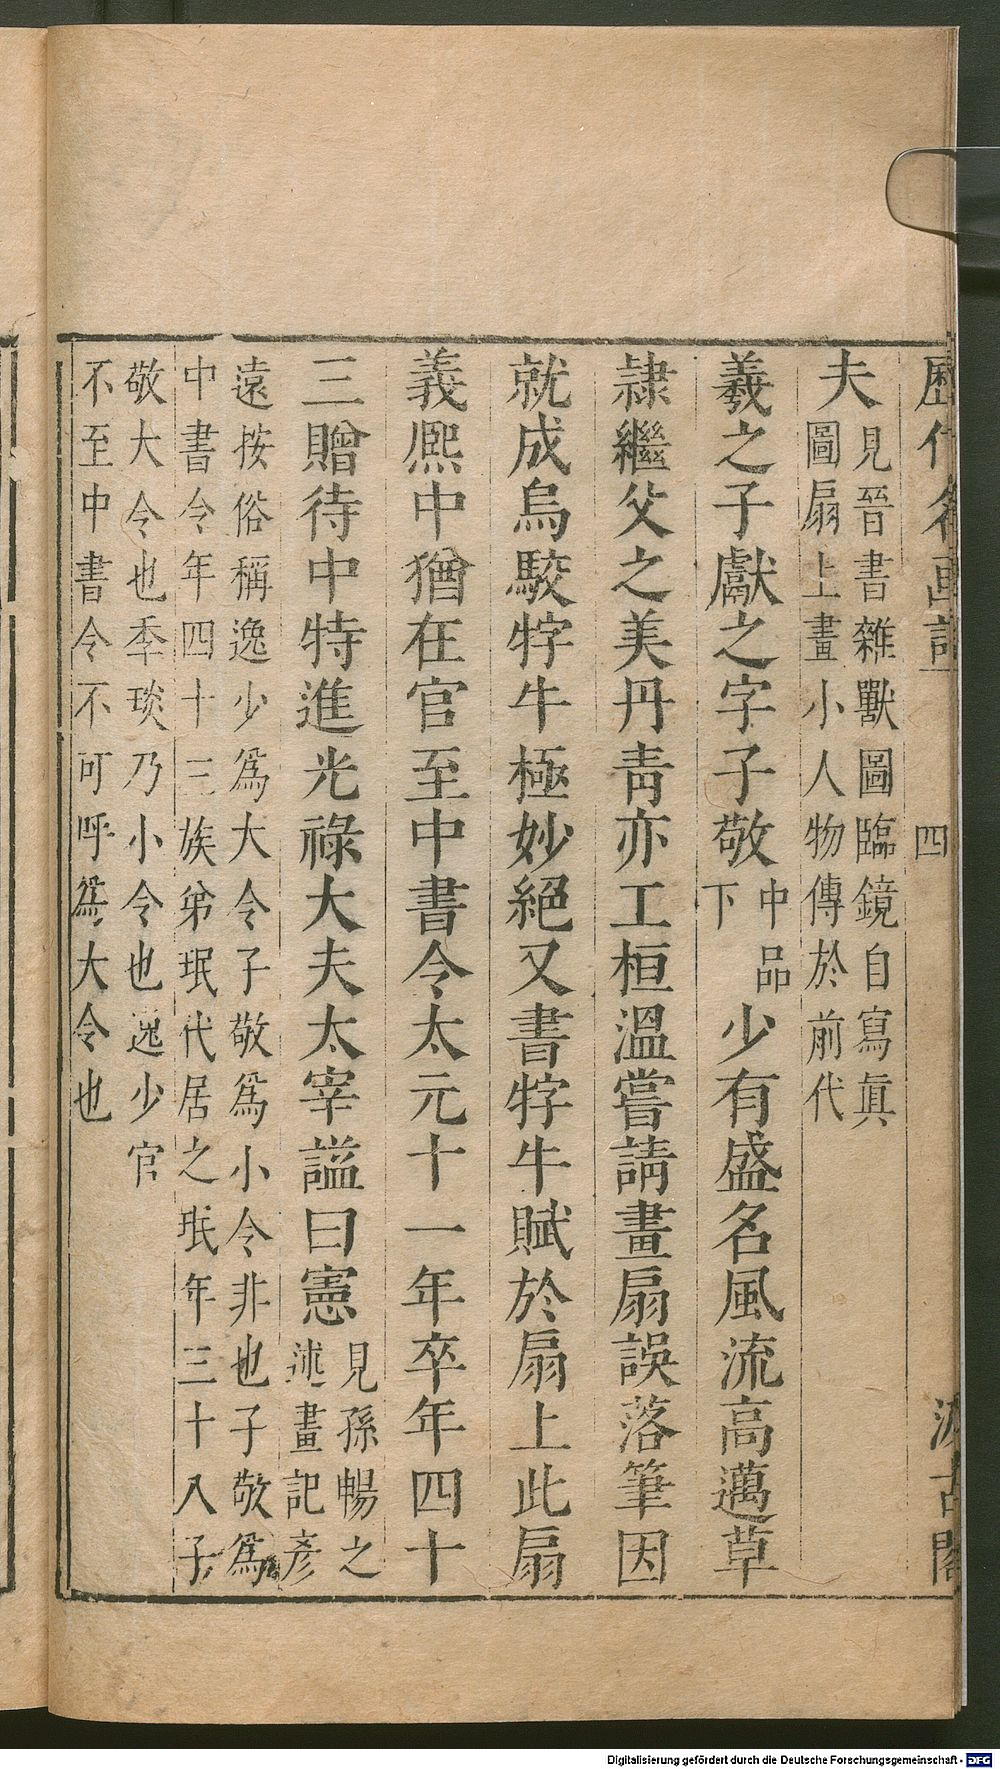 歷代名画記
四
汲古閣
夫
見晉書雜獸圖臨鏡自寫眞
圖扇上畫小人物傳於前代
羲之子獻之字子敬
中品
下
少有盛名風流高邁草
隷繼父之美丹靑亦工桓溫嘗請畫扇誤落筆因
就成烏駮牸牛極妙絕又書牸牛賦於扇上此扇
義熈中猶在官至中書令太元十一年卒年四十
三贈待中特進光祿大夫太宰諡曰憲
見孫暢之
述畫記彦
遠按俗稱逸少爲大令子敬爲小令非也子敬爲
中書令年四十三族弟珉代居之珉年三十八子
敬大令也季琰乃小令也逸少官
不至中書令不可呼爲大令也
Digitalisierung gefördert durch die Deutsche Forschungsgemeinschaft - DFG